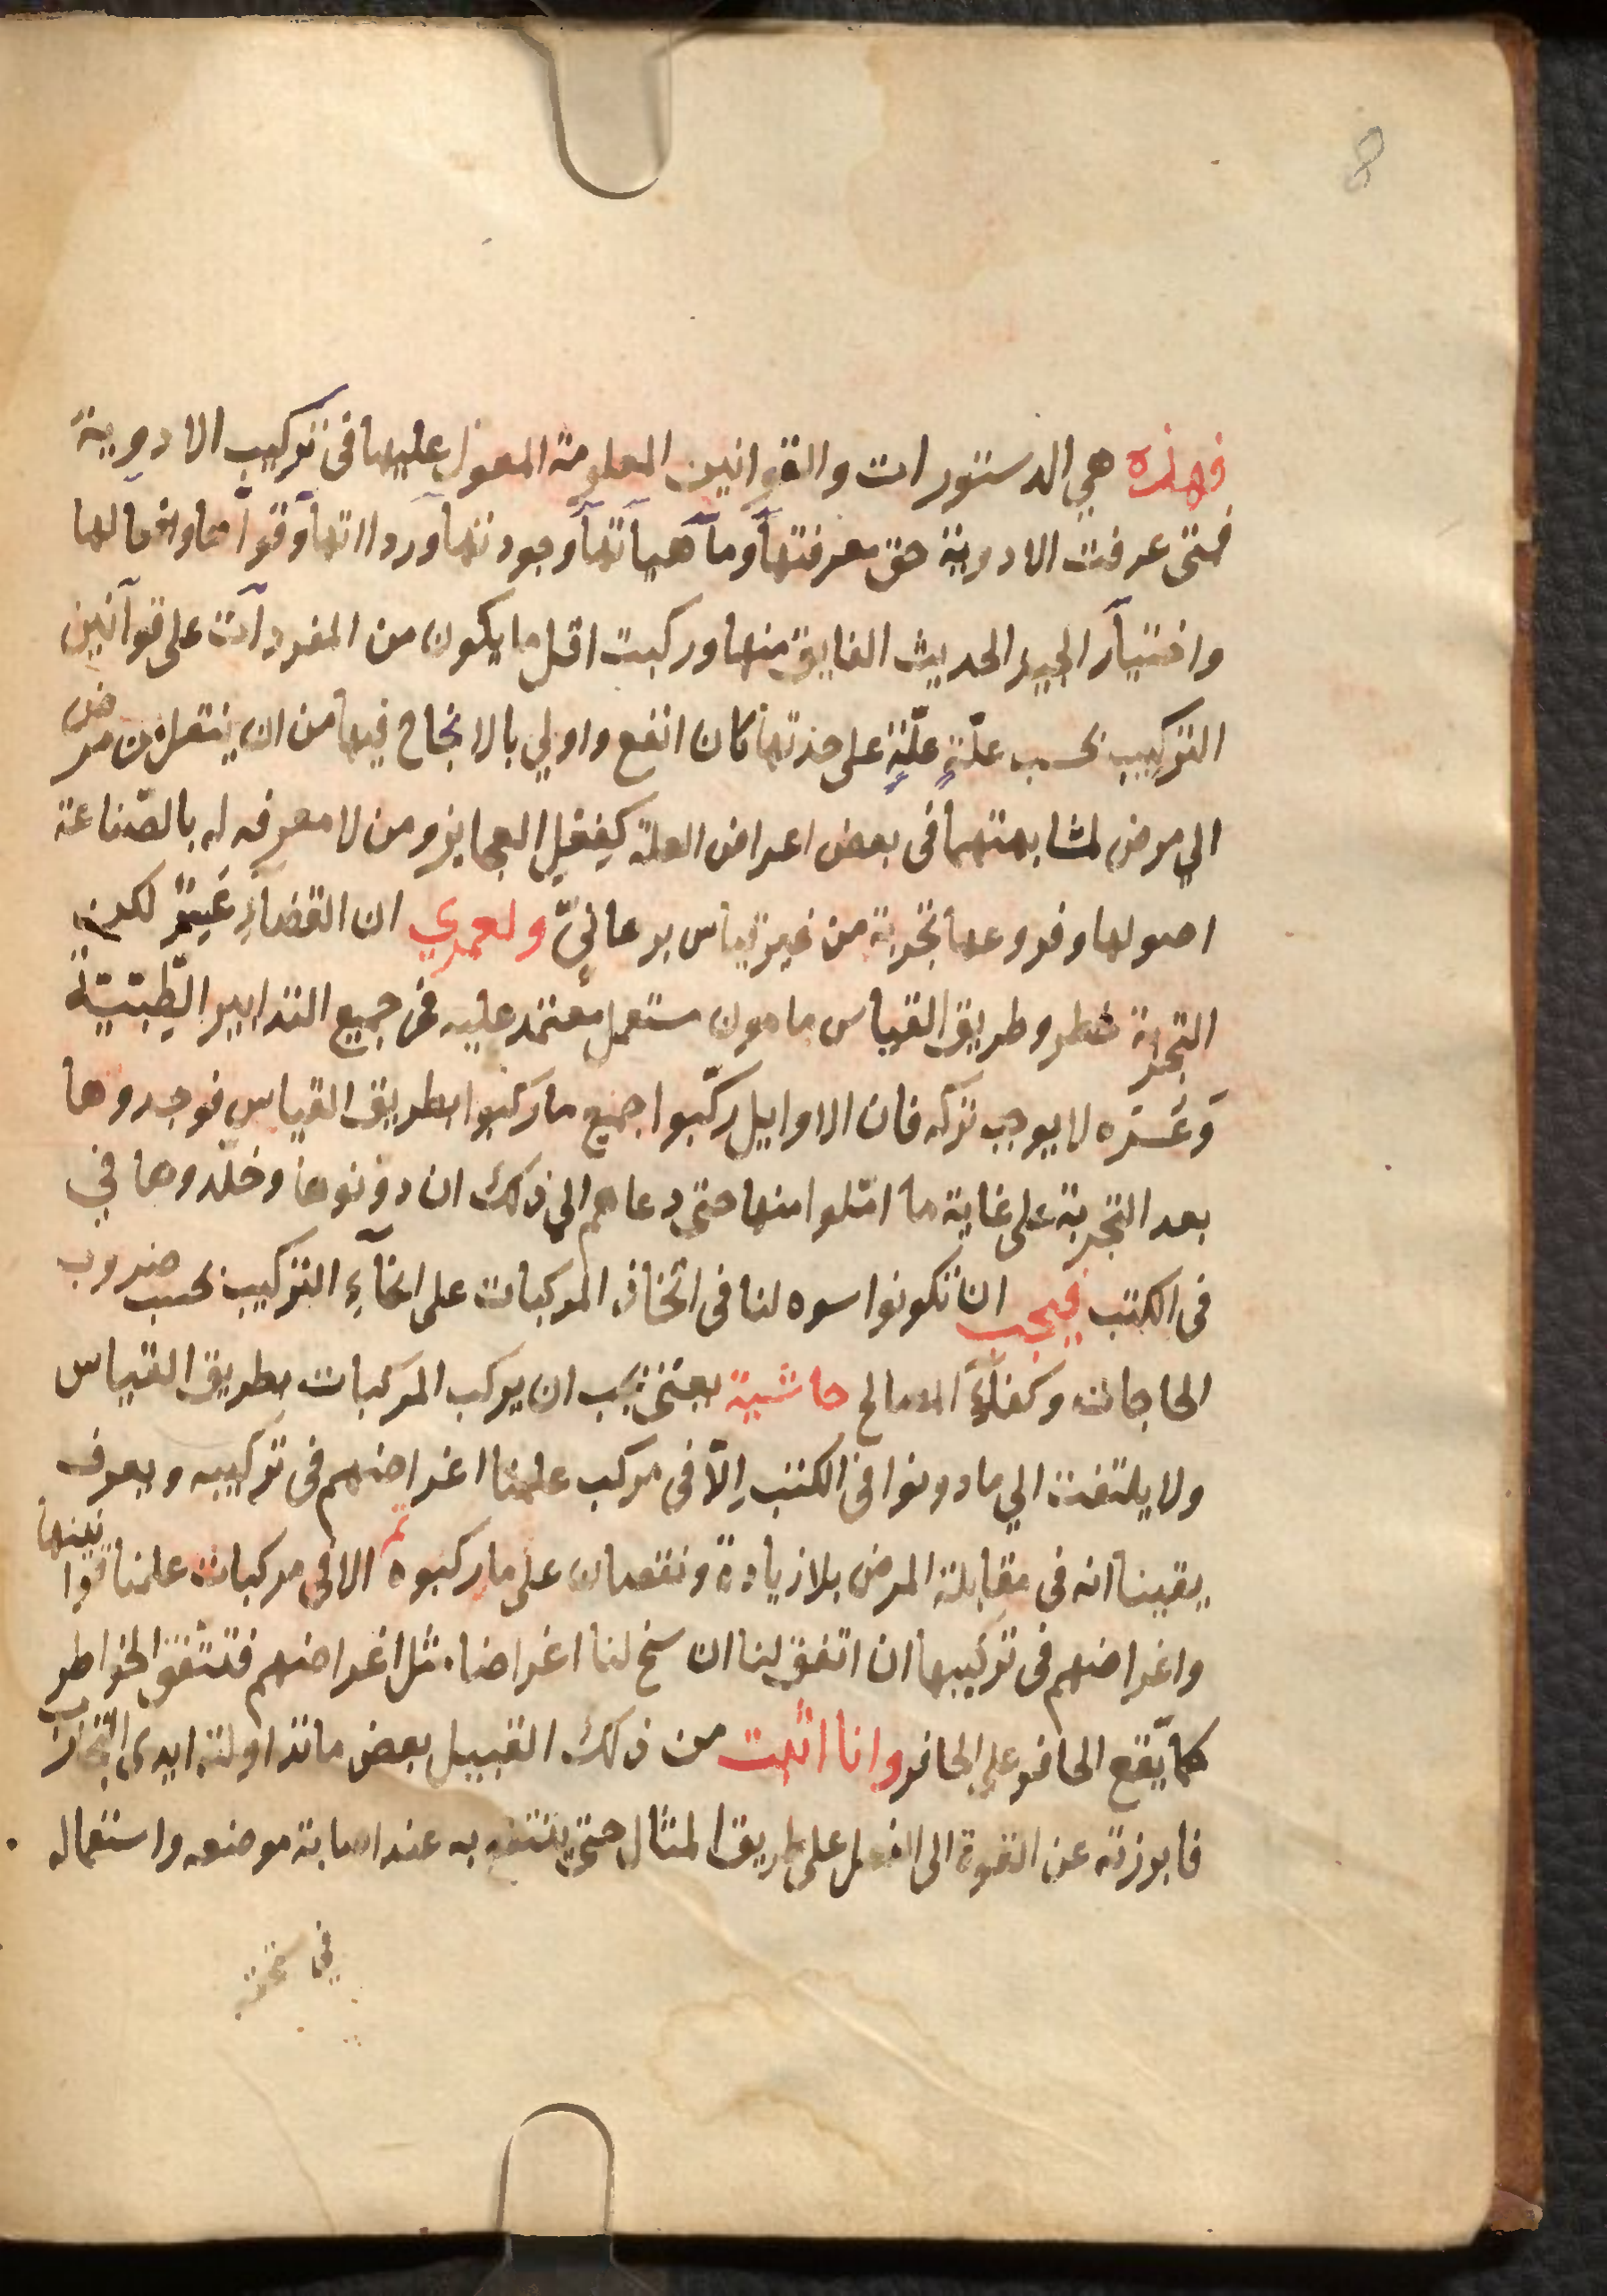 8
فهذه هي الدستورات والقوانين المعلومة المعول عليها فى تركيب الادوية
فمتى عرفت الادوية حق معرفتها وماهياتها وجودتها ورداتها وقواها وافعالها
واختيار الجيد الحديث الفايق منها وركبت اقل ما يكون من المفردات على قوانين
التركيب بحسب علّةٍ علّةٍ على حدتها كان انفع واولي بالانجاح فيها من ان ينتقل من مرض
الي مرض لمشابهتهما فى بعض اعراض العلة كفعل العجايز ومن لا معرفه له بالصّناعة
اصولها وفروعها تجربة من غير قياس برهانيّ ولعمري ان القضا عسر لكن
التجربة خطر وطريق القياس مامون مستعمل معتمد عليه فى جميع التدابير الطّبّيّة
وعسره لا يوجب تركه فان الاوايل ركّبوا جميع ما ركبوا بطريق القياس فوجدوها
بعد التجربة على غاية ما امّلوا منها حتى دعاهم الي ذلك ان دونوها وخلّدوها في
فى الكتب فيجب ان تكونوا اسوه لنا فى اتخاذ المركبات على انحآءِ التركيب بحسب ضروب
الحاجات وكفآء المصالح حاشية يعنى يجب ان يركب المركبات بطريق القياس
ولا يلتفت الي ما دونوا فى الكتب اِلّا فى مركب علمنا اغراضهم فى تركيبه ويعرف
يقينا انه فى مقابلة المرض بلا زيادة ونقصان على ما ركبوه تم الا فى مركبات علمنا قوانينها
واغراضهم فى تركيبها ان اتفق لنا ان سنح لنا اغراضا مثل اغراضهم فتتفق الخواطر
كما يقع الحافر على الحافر وانا اثبت من ذلك القبيل بعض ما تداولته ايدى التجارب
فابرزته عن القوة الى الفعل على طريق المثال حتى ينتفع به عند اصابة موضعه واستعماله
في